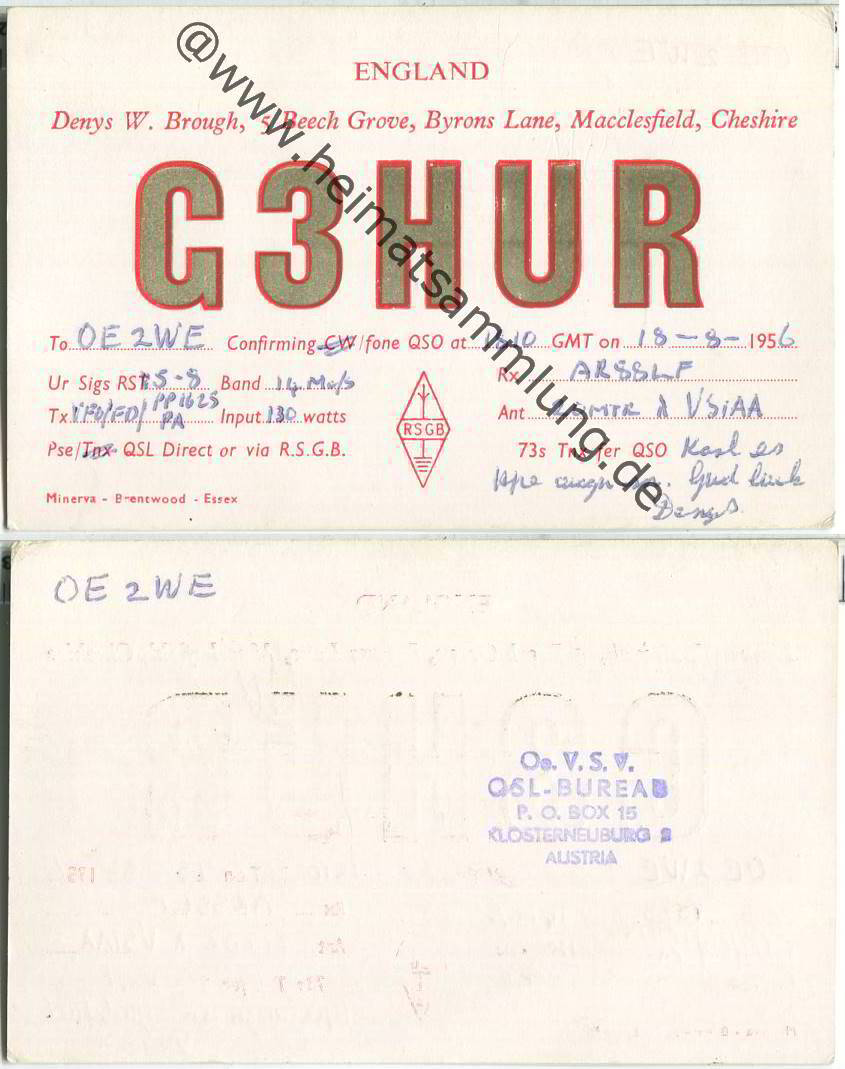 ENGLAND
Denys W. Brough, 5, Beech Grove, Byrons Lane, Macclesfield, Cheshire
G3HUR
To OE2WE Confirming CW/fone QSO at GMT on 18-8-1956
Ur Sigs RST 5-8 Band 14 Mc/s Rx AR88LF
Tx VFO/FD/PP1625 PA Input 130 watts Ant λ VS1AA
RSGB
Pse/Tnx QSL Direct or via R.S.G.B. 73s Tnx fer QSO Karl es
hpe cuagn sn. Gud luck
Minerva - Brentwood - Essex
Denys
@www.heimatsammlung.de
OE2WE
Oe. V. S. V.
QSL-BUREAU
P. O. BOX 15
KLOSTERNEUBURG 2
AUSTRIA